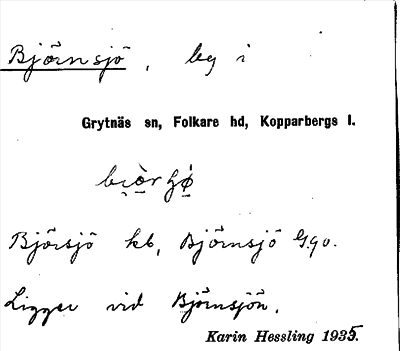 Björnsjö, beg i
Grytnäs sn, Folkare hd, Kopparbergs l.
Björsjö kb, Björnsjö
Ligger vid Björnsjön.
Karin Hessling 1935.